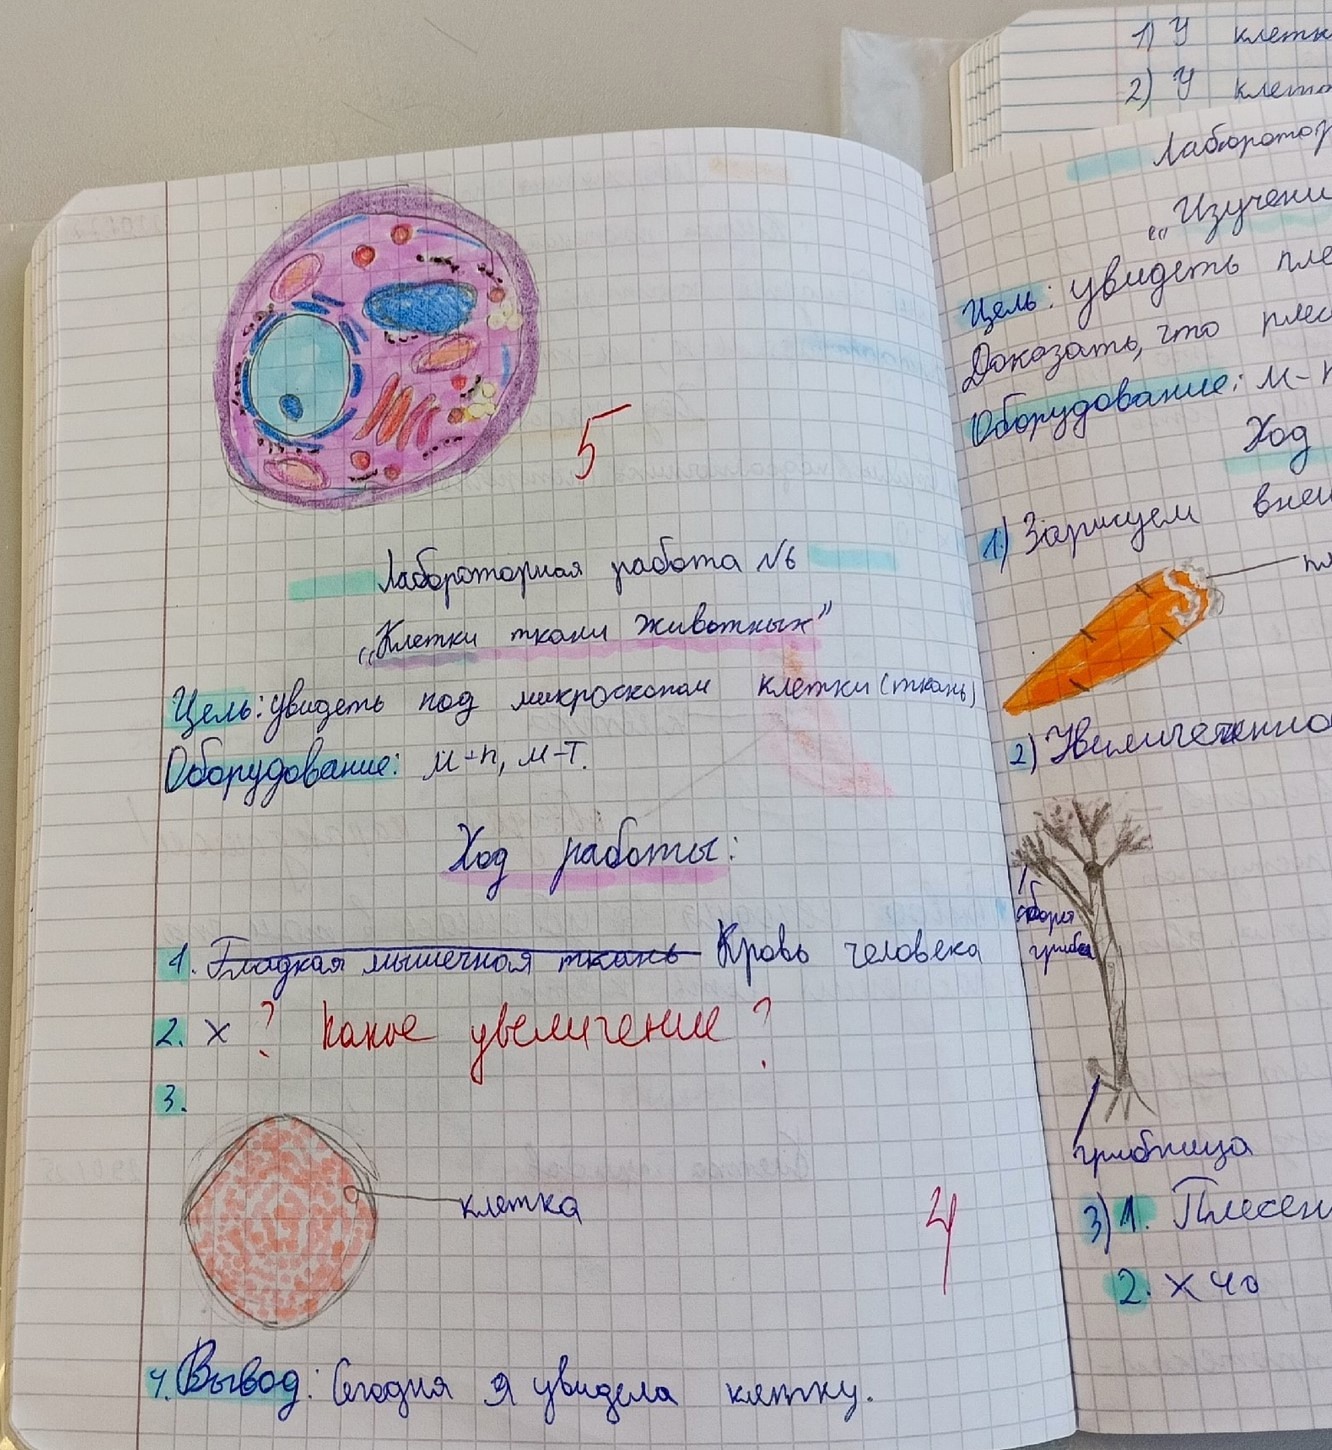 5
Лабороторная работа №6
„Клетки ткани животных”
Цель: увидеть под микроскопом клетки (ткань)
Оборудование: м-п, м-т.
Ход работы:
1. Гладкая мышечная ткань Кровь человека
2. х ? Какое увеличение ?
3.
клетка
4
4. Вывод: Сегодня я увидела клетку.
1) У клетк
2) У клето
Лаборотор
„Изучени
Цель: увидеть пле
Доказать, что плес
Оборудование: м-п
Ход
1) Зарисуем внеш
2)
грибница
3) 1. Плесен
2. х 40